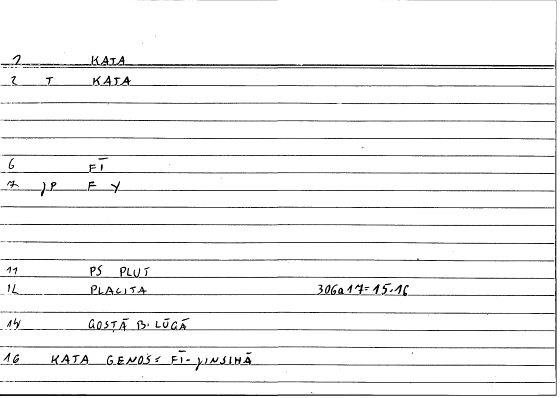 1 KATA
2 T KATA
6 FĪ
7 JP F Y
11 PS PLUT
12 PLACITA 306a17=15.16
14 GOSṬĀ B. LŪQĀ
16 KATA GENOS = FĪ-JINSIHĀ